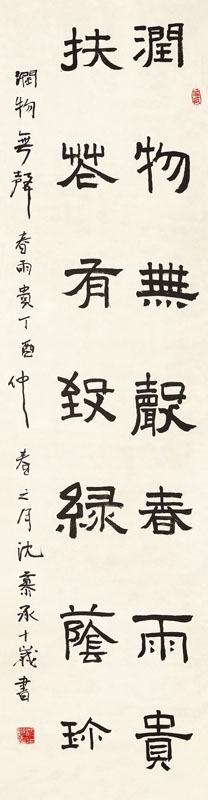 潤物無聲春雨貴
扶花有致緑蔭珍
潤物無聲春雨貴丁酉仲春之月沈慕承十歲書